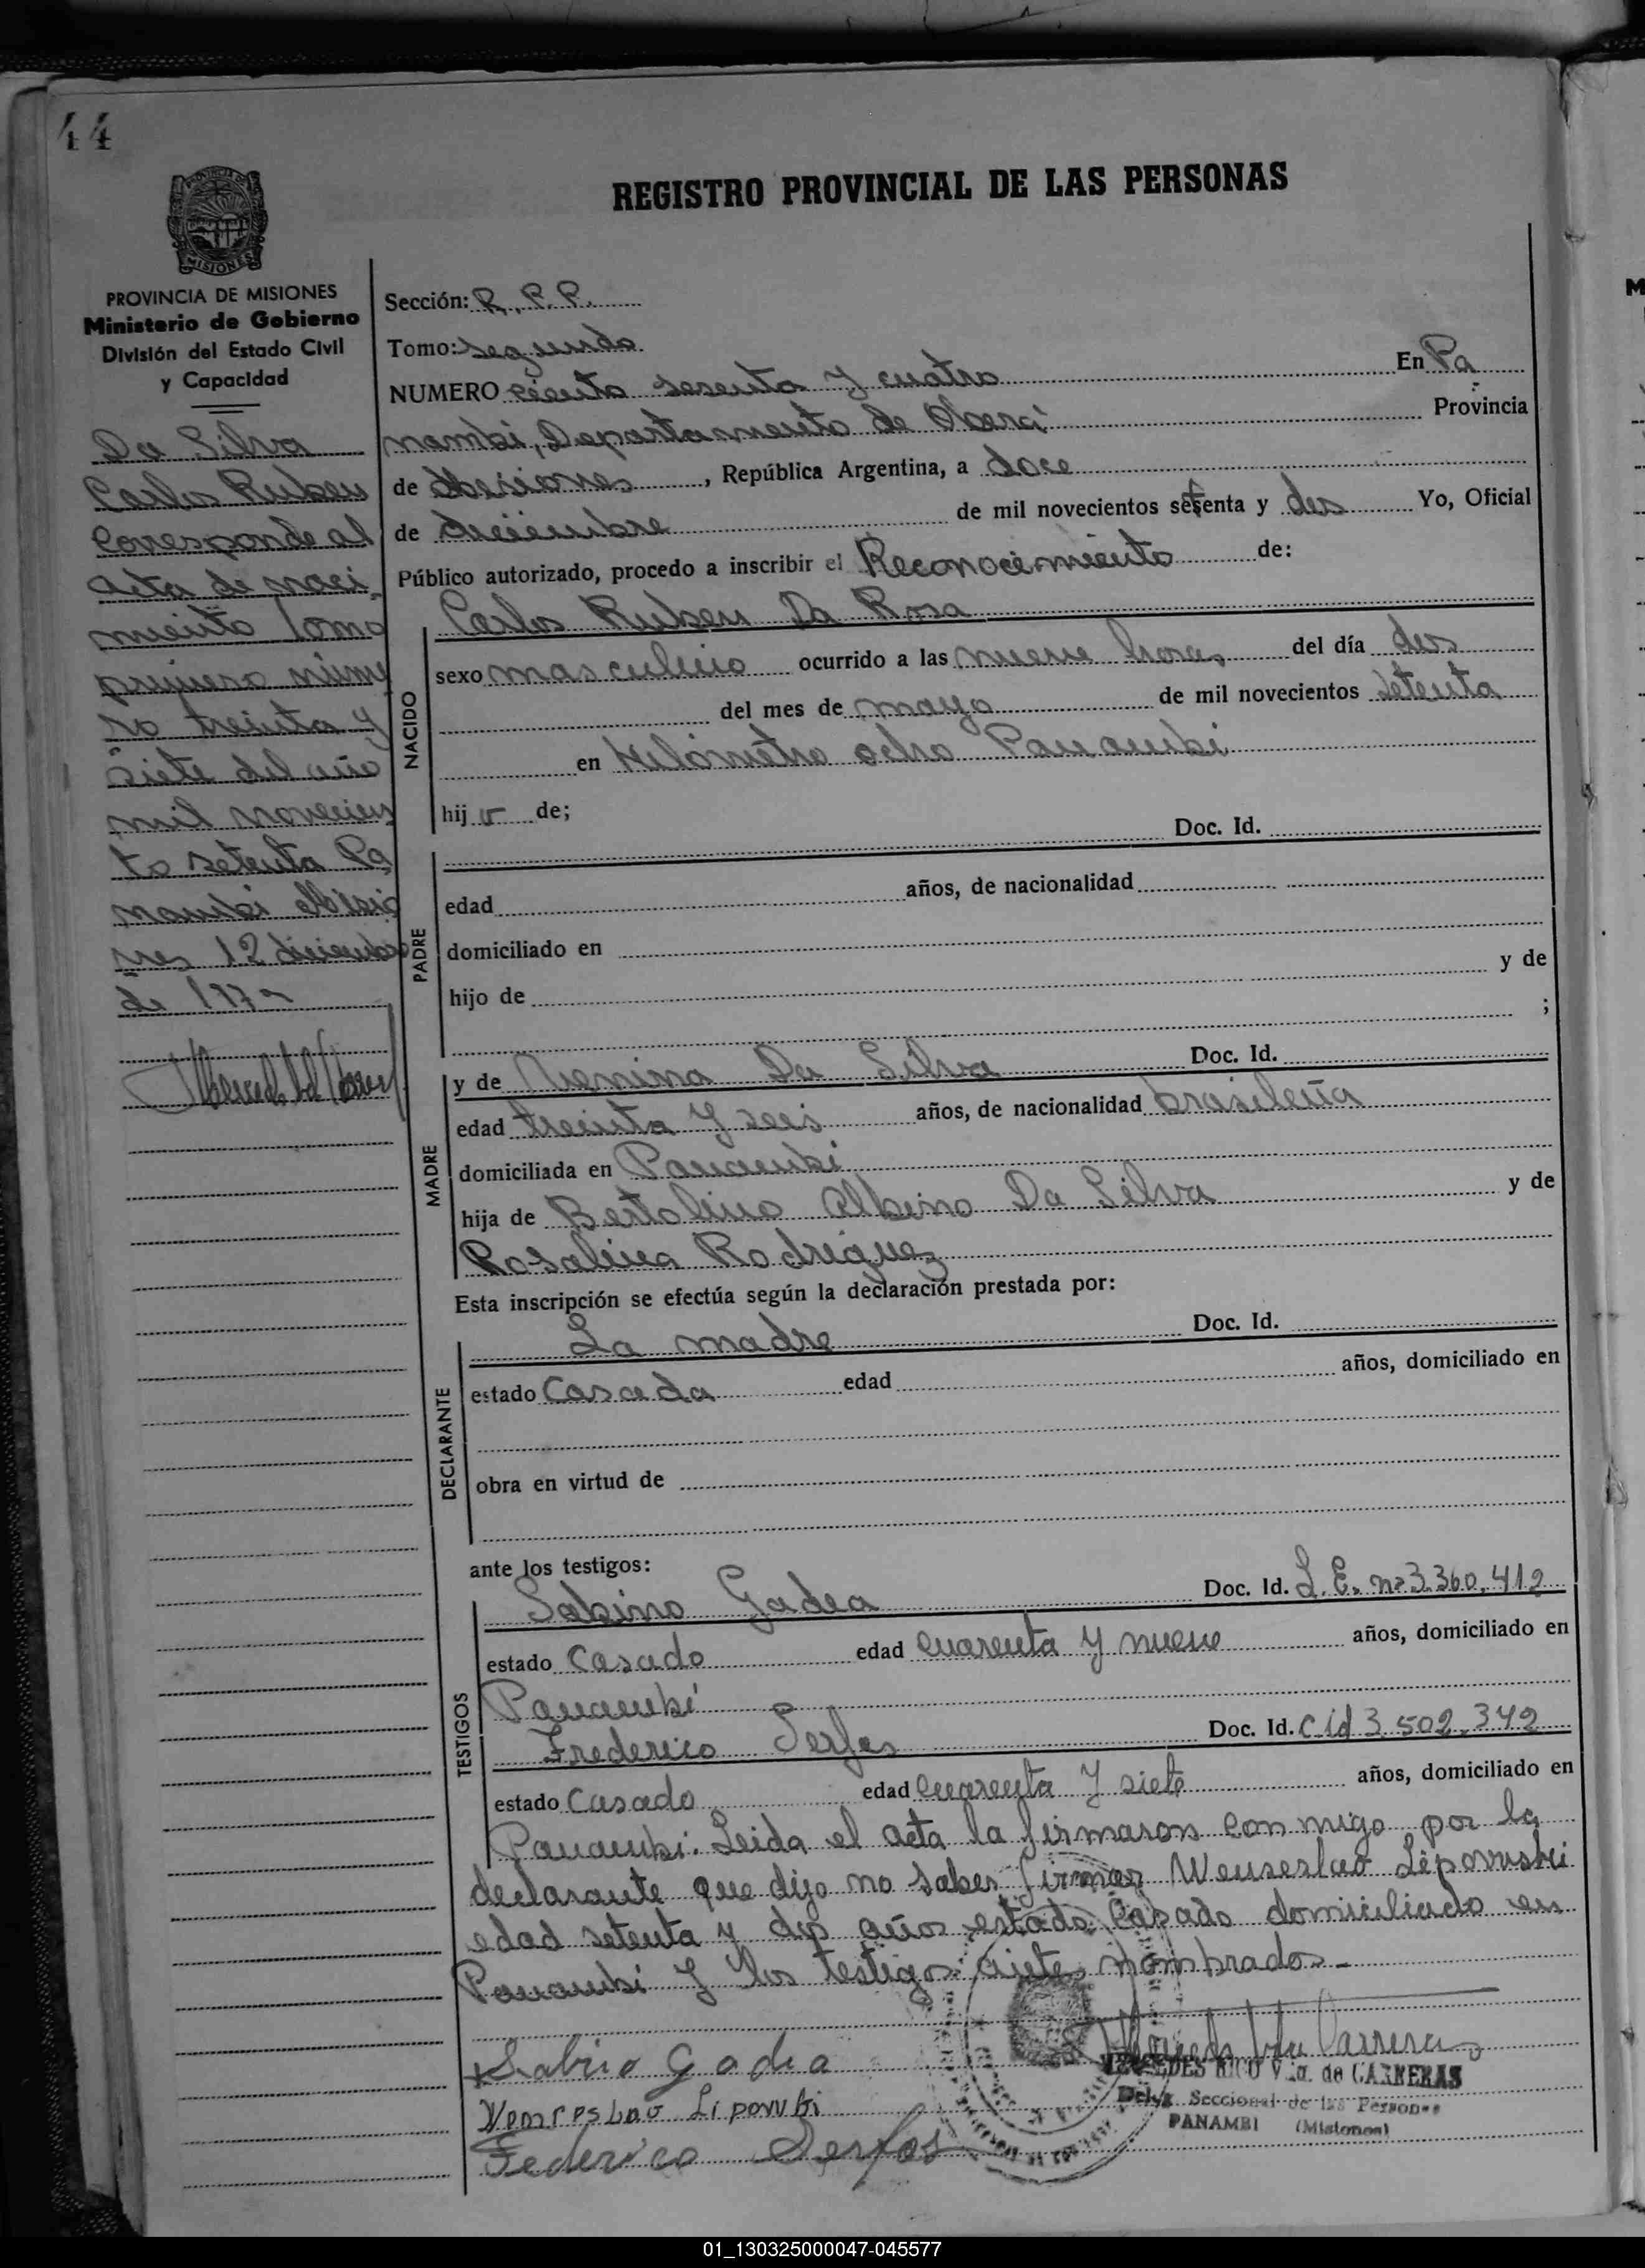 44
REGISTRO PROVINCIAL DE LAS PERSONAS
PROVINCIA DE MISIONES
MISIONES
PROVINCIA DE MISIONES
Ministerio de Gobierno
División del Estado Civil
y Capacidad
Da Silva
Carlos Ruben
Corresponde al
acta de naci
miento Tomo
primero núme
ro treinta y
siete del año
mil novecien
to setenta Pa
nambi Misio
nes 12 diciembre
de 1972
Sección: R. P. P.
Tomo: segundo
NUMERO ciento sesenta y cuatro En Pa
nambi, Departamento de Oberá Provincia
de Misiones, República Argentina, a doce
de diciembre de mil novecientos setenta y dos Yo, Oficial
Público autorizado, procedo a inscribir el Reconocimiento de:
Carlos Ruben Da Rosa
NACIDO
sexo masculino ocurrido a las nueve horas del día dos
del mes de mayo de mil novecientos setenta
en Kilómetro ocho Panambi
hijo de;
PADRE
Doc. Id.
edad años, de nacionalidad
domiciliado en
hijo de y de
;
MADRE
y de Da Silva Doc. Id.
edad treinta y seis años, de nacionalidad brasileña
domiciliada en Panambi
hija de Bertolino Albino Da Silva y de
Rosalina Rodriguez
Esta inscripción se efectúa según la declaración prestada por:
DECLARANTE
La madre Doc. Id.
estado Casada edad años, domiciliado en
obra en virtud de
ante los testigos:
TESTIGOS
Sabino Gadea Doc. Id. L. E. nº 3.360.412
estado Casado edad cuarenta y nueve años, domiciliado en
Panambí
Frederico Serfas Doc. Id. C id 3 502.342
estado Casado edad cuarenta y siete años, domiciliado en
Panambi. Leida el acta la firmaron con migo por la
declarante que dijo no saber firmar Wenseslao Lipovuski
edad setenta y dos años estado Casado domiciliado en
Panambi y los testigos antes nombrados -
Sabino Gadea
Federico Serfas
MERCEDES RICO Vda. de CARRERAS
Deleg. Seccional de las Personas
PANAMBI (Misiones)
01_130325000047-045577